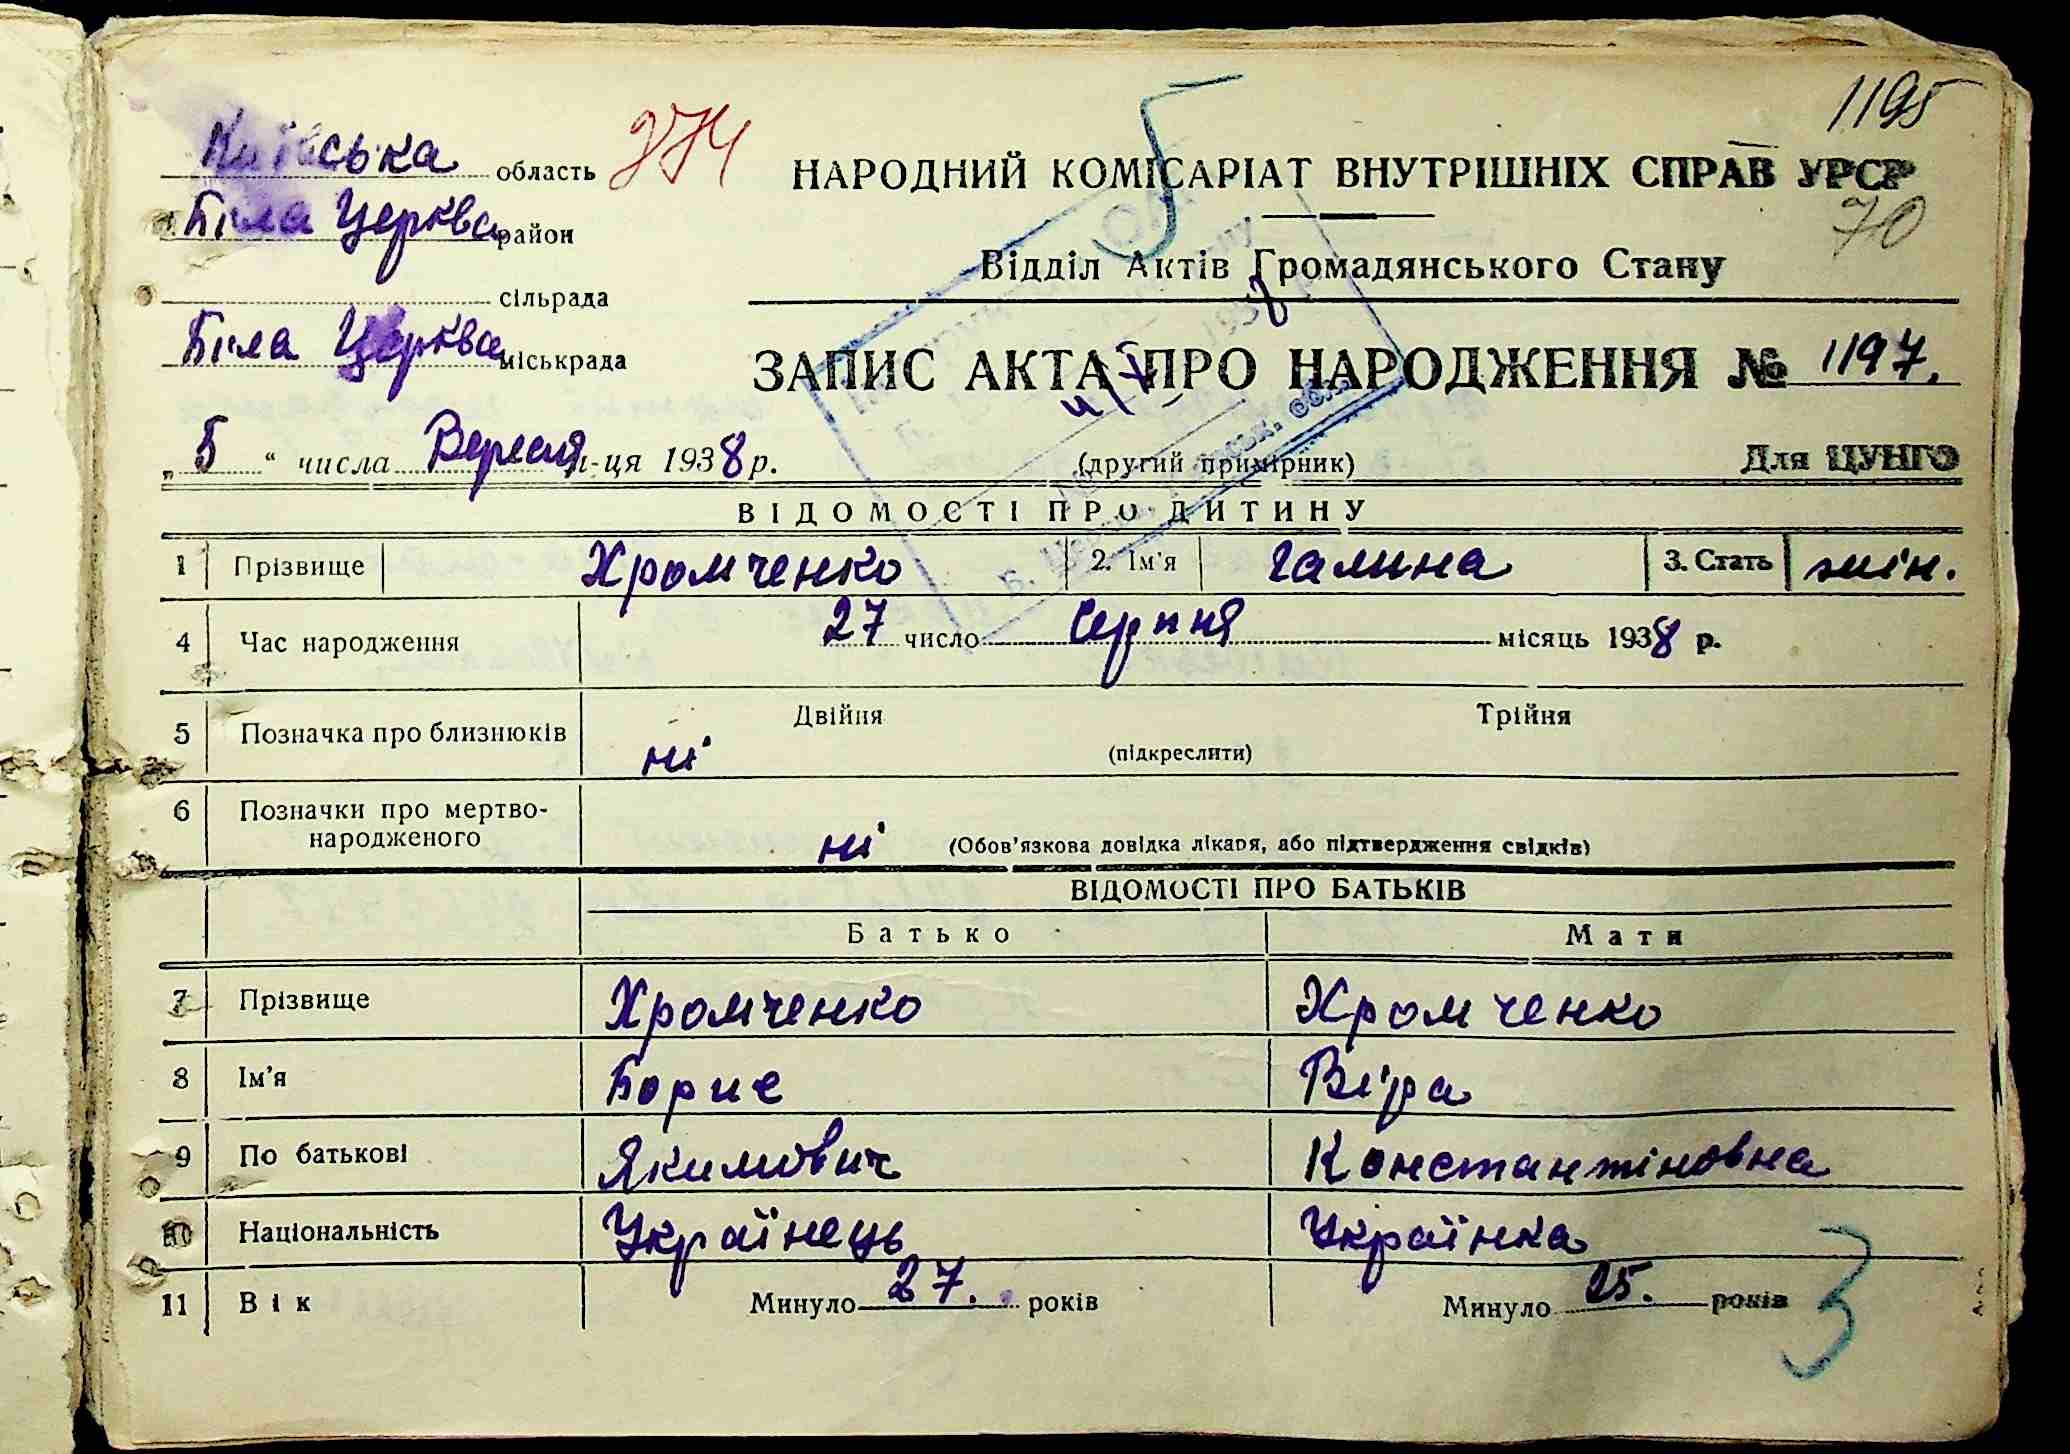 1195
Київська область 274
НАРОДНИЙ КОМІСАРІАТ ВНУТРІШНІХ СПРАВ УРСР
5
70
Біла Церква район
Відділ Актів Громадянського Стану
сільрада
Біла Церква міськрада
ЗАПИС АКТА ПРО НАРОДЖЕННЯ № 1197.
„ 5 “ числа Вересня м-ця 1938 р.
(другий примірник)
Для ЦУНГО
ВІДОМОСТІ ПРО ДИТИНУ
1 Прізвище Хромченко 2. Ім'я Галина 3. Стать жін.
4 Час народження 27 число серпня місяць 1938 р.
5 Позначка про близнюків ні Двійня Трійня
(підкреслити)
6 Позначки про мертво-
народженого ні (Обов'язкова довідка лікаря, або підтвердження свідків)
ВІДОМОСТІ ПРО БАТЬКІВ
Батько Мати
7 Прізвище Хромченко Хромченко
8 Ім'я Борис Віра
9 По батькові Якимович Константіновна
10 Національність Українець Українка
11 Вік Минуло 27. років Минуло 25. років
3